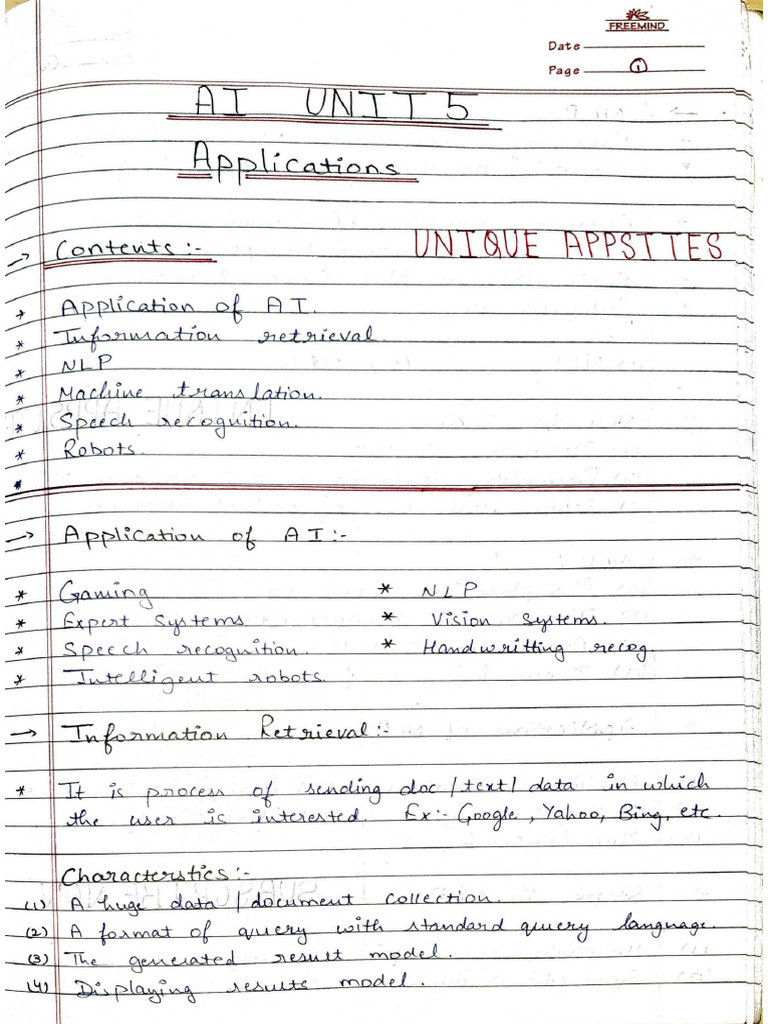 FREEMIND
Date
Page 1
AI UNIT 5
Applications
→ Contents :-
UNIQUE APPSITES
* Application of AI.
* Information retrieval.
* NLP
* Machine translation.
* Speech recognition.
* Robots.
*
→ Application of AI:-
* Gaming * NLP
* Expert Systems * Vision Systems.
* Speech recognition. * Handwritting recog.
* Intelligent robots.
→ Information Retrieval:-
* It is process of sending doc/text/data in which
the user is interested. Ex:- Google, Yahoo, Bing, etc.
Characterstics:-
(1) A huge data/document collection.
(2) A format of query with standard query language.
(3) The generated result model.
(4) Displaying results model.